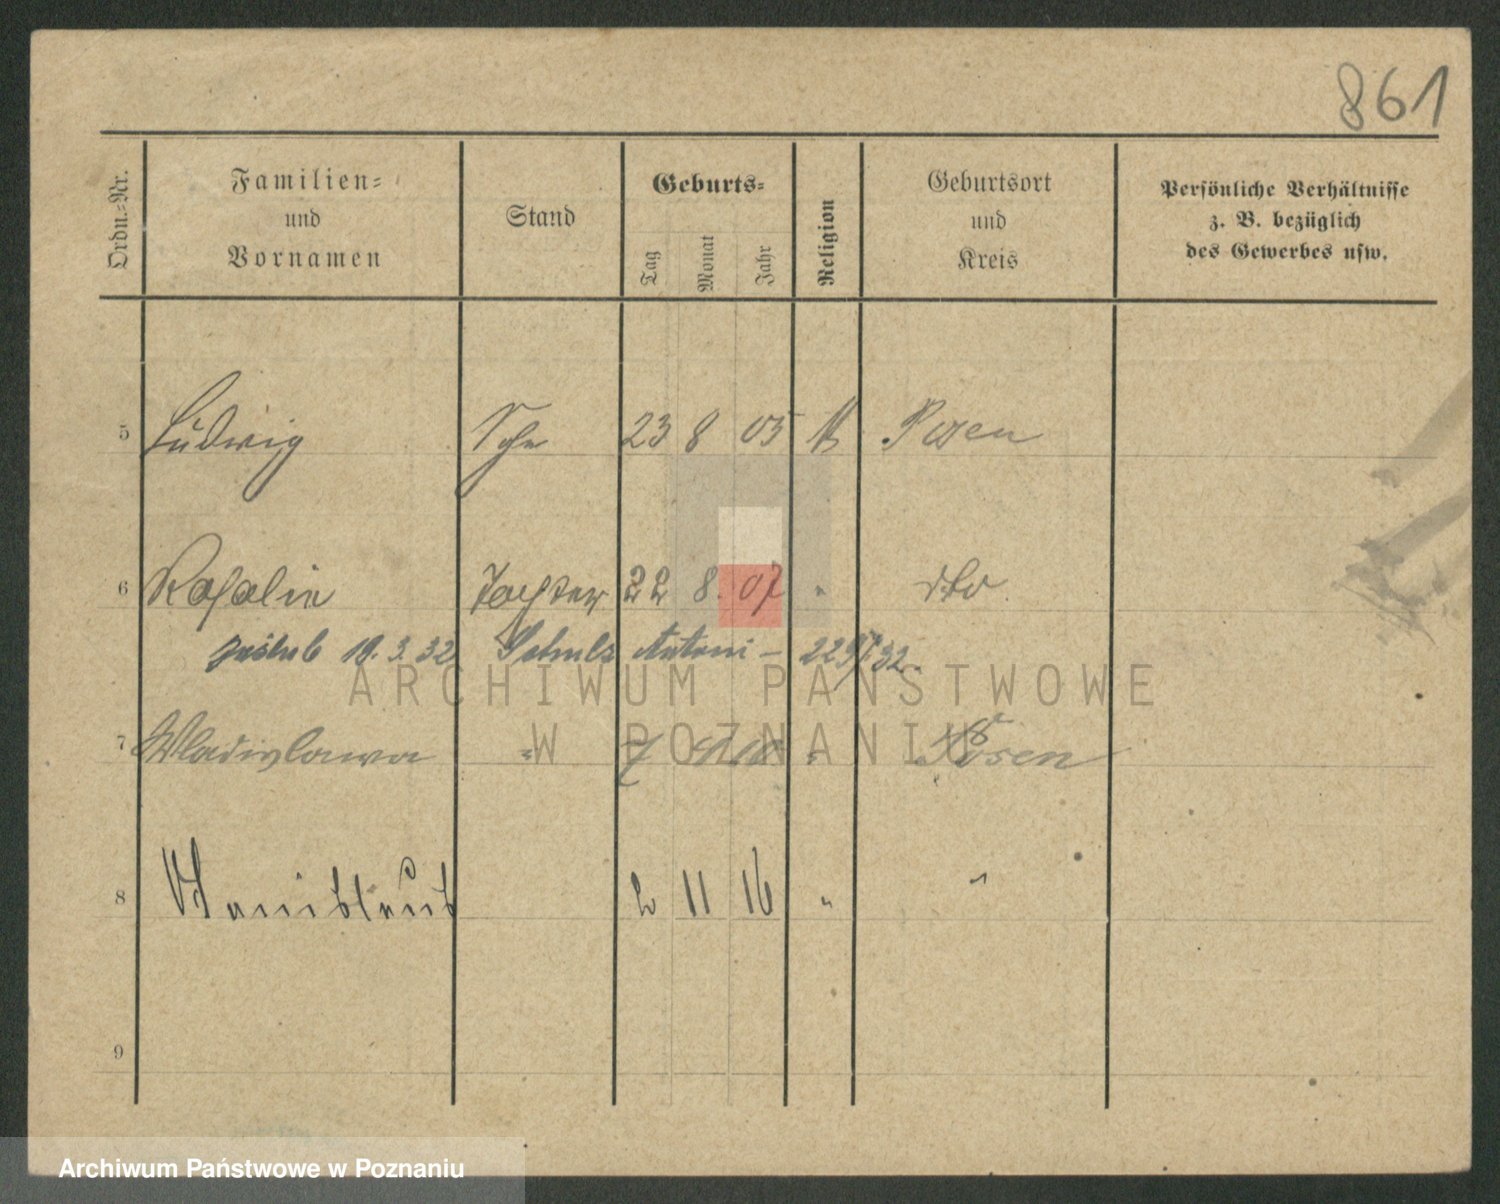 861
Ordn.-Nr.
Familien-
und
Vornamen
Stand
Geburts-
Tag
Monat
Jahr
Religion
Geburtsort
und
Kreis
Persönliche Verhältnisse
z. B. bezüglich
des Gewerbes usw.
5 Ludwig Sohn 23 8 05 K Posen
6 Rosalie Tochter 22 8. 07 " dto.
zaślub 18.3.32 Schulz Antoni – 32.
7 Wladislawa " 7 10 " Posen
8 Stanislaus 2 11 16 " "
9
ARCHIWUM PAŃSTWOWE
W POZNANIU
Archiwum Państwowe w Poznaniu